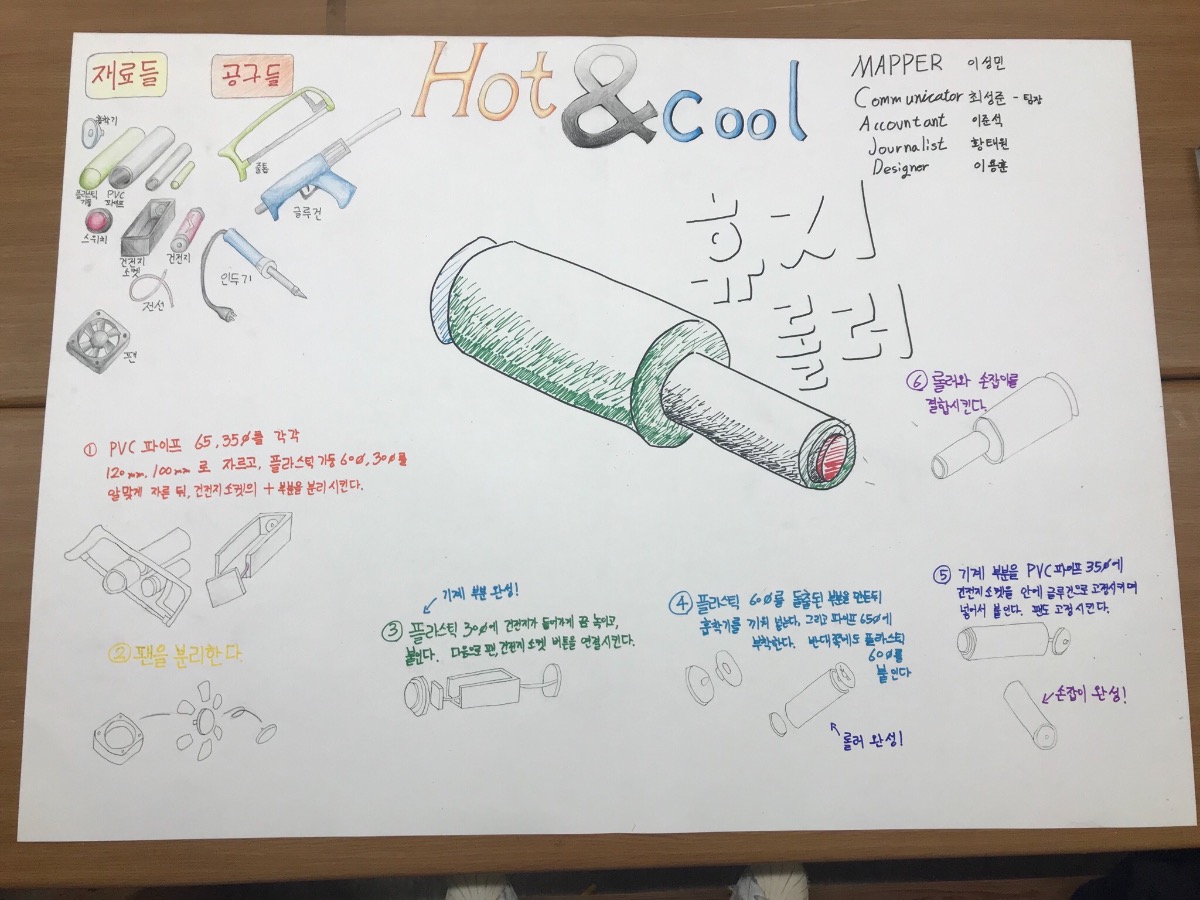 재료들
공구들
Hot & Cool
MAPPER 이성민
Communicator 최성준 - 팀장
Accountant 이준석
Journalist 황태원
Designer 이용훈
흡착기
플라스틱 기둥
PVC 파이프
스위치
건전지 소켓
건전지
전선
팬
줄톱
글루건
인두기
① PVC 파이프 65, 35ø를 각각
120mm, 100mm 로 자르고, 플라스틱 기둥 60ø, 30ø를
알맞게 자른 뒤, 건전지 소켓의 + 부분을 분리시킨다.
② 팬을 분리한다.
기계 부분 완성!
③ 플라스틱 30ø에 건전지가 들어가게끔 녹이고,
붙인다. 다음으로 팬, 건전지 소켓 버튼을 연결시킨다.
④ 플라스틱 60ø를 돌출된 부분을 만든뒤
흡착기를 끼워 넣는다, 그리고 파이프 65ø에
부착한다. 반대쪽에도 플라스틱
60ø를
붙인다
롤러 완성!
⑤ 기계 부분을 PVC 파이프 35ø에
건전지 소켓을 안에 글루건으로 고정시키며
넣어서 붙인다. 팬도 고정시킨다.
손잡이 완성!
⑥ 롤러와 손잡이를
결합시킨다.